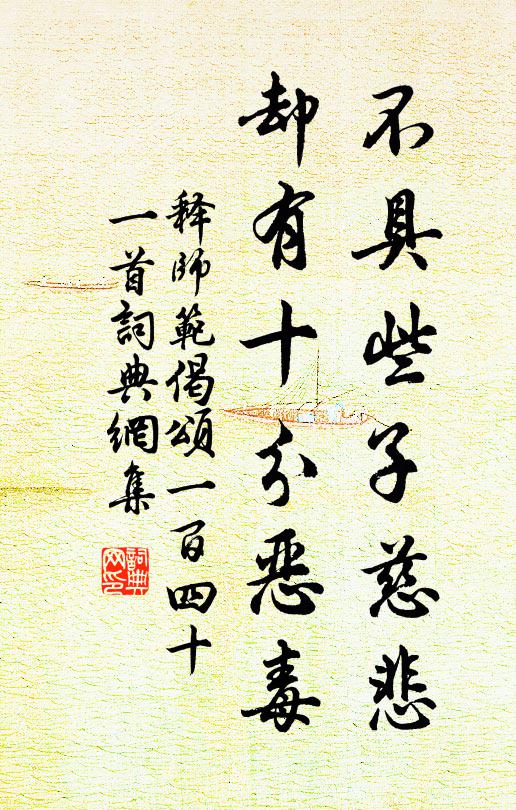 不具些子慈悲
却有十分恶毒
释师範偈頌一百四十
一首詞典網集
詞典网印